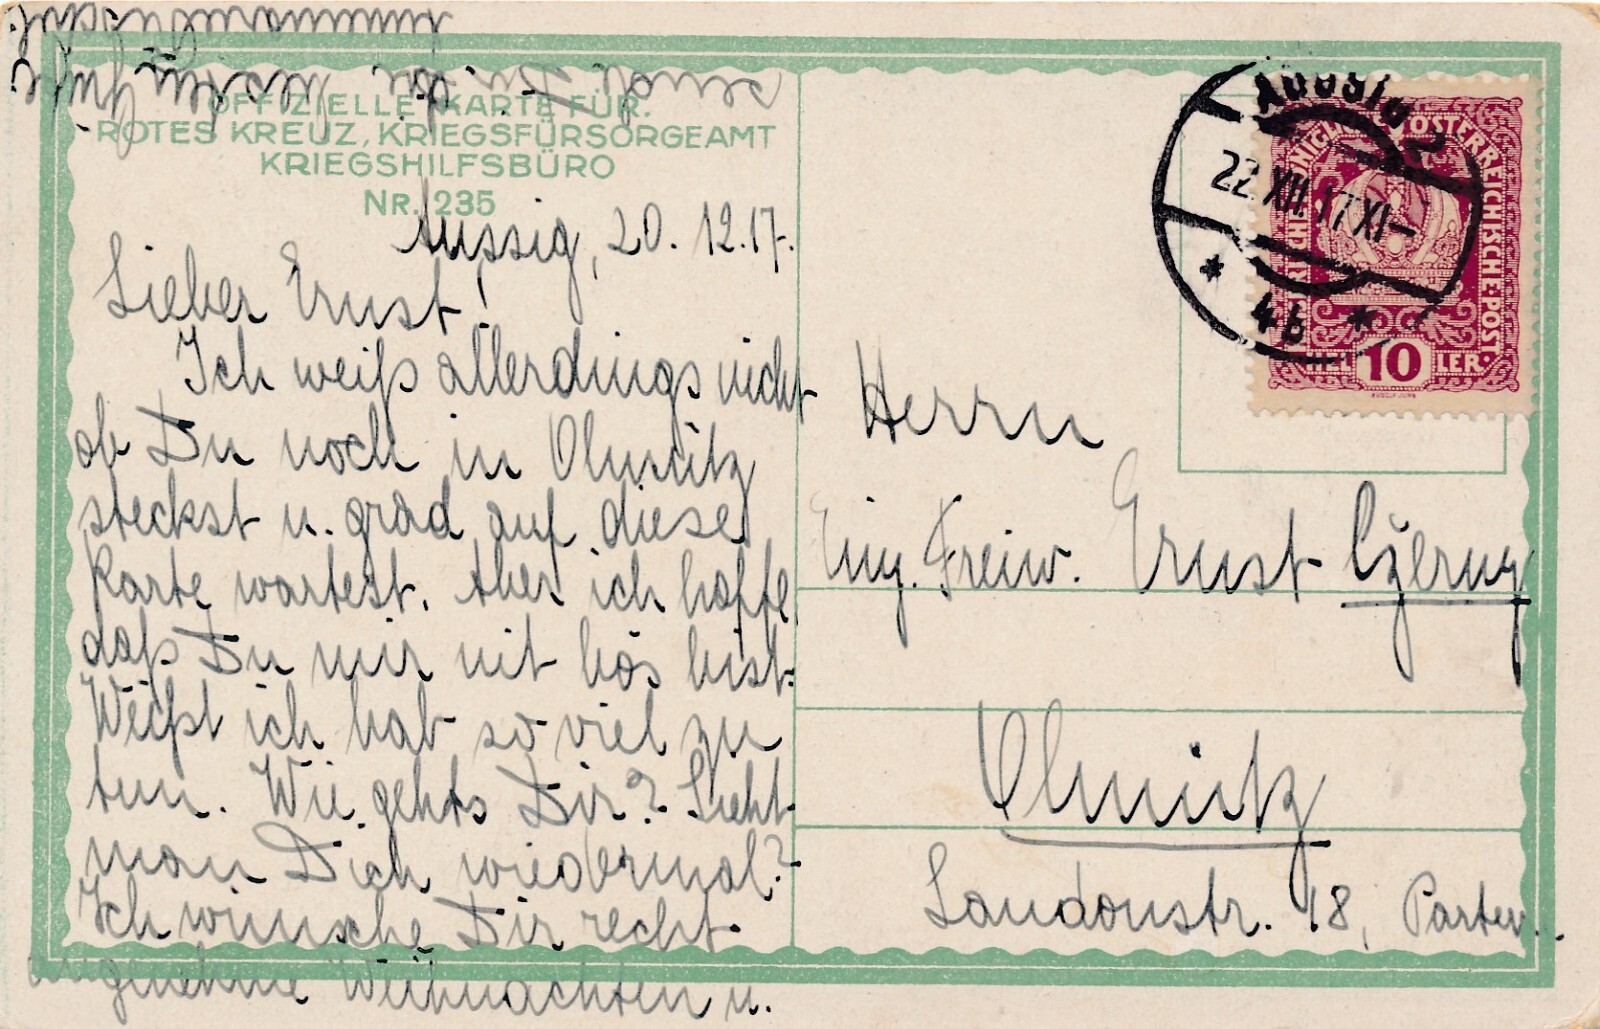 OFFIZIELLE KARTE FÜR:
ROTES KREUZ, KRIEGSFÜRSORGEAMT
KRIEGSHILFSBÜRO
NR. 235
Aussig, 20. 12. 17.
Lieber Ernst!
Ich weiß allerdings nicht
ob Du noch in Olmütz
steckst u. grad auf diese
Karte wartest. Aber ich hoffe
daß Du mir nit bös bist.
Weißt ich hab so viel zu
tun. Wie gehts Dir? Sieht
man Dich wiedermal?
Ich wünsche Dir recht
angenehme Weihnachten u.
AUSSIG 2
22.XII.17 XI-
* 4b *
KÖNIGLICHE ÖSTERREICHISCHE·POST·
10
HELLER
RUDOLF JUNK
Herrn
Einj. Freiw. Ernst Czerny
Olmütz
Laudonstr. 18, Parterre.